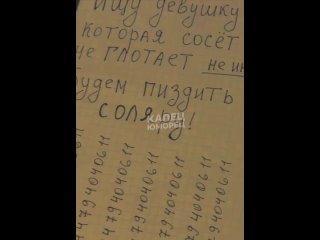 Ищу девушку
которая сосёт
не глотает не
будем пиздить
СОЛЯРУ!
КАПЕЦ
ЮМОРЕЦ
4794040611
4794040611
4794040611
4794040611
4794040611